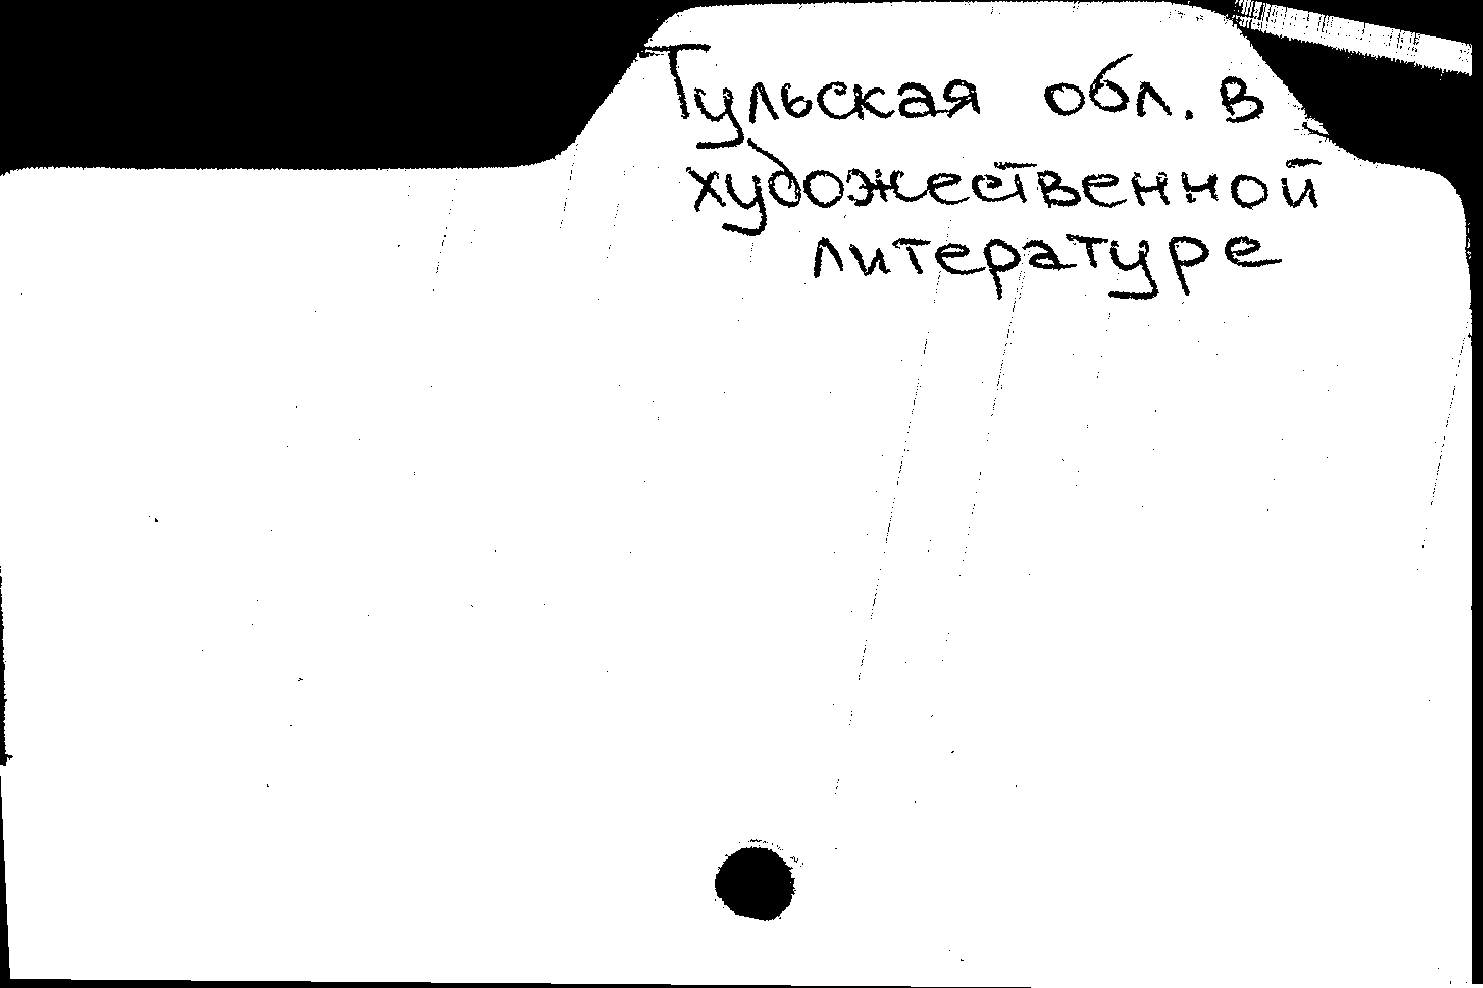 Тульская обл. в
художественной
литературе